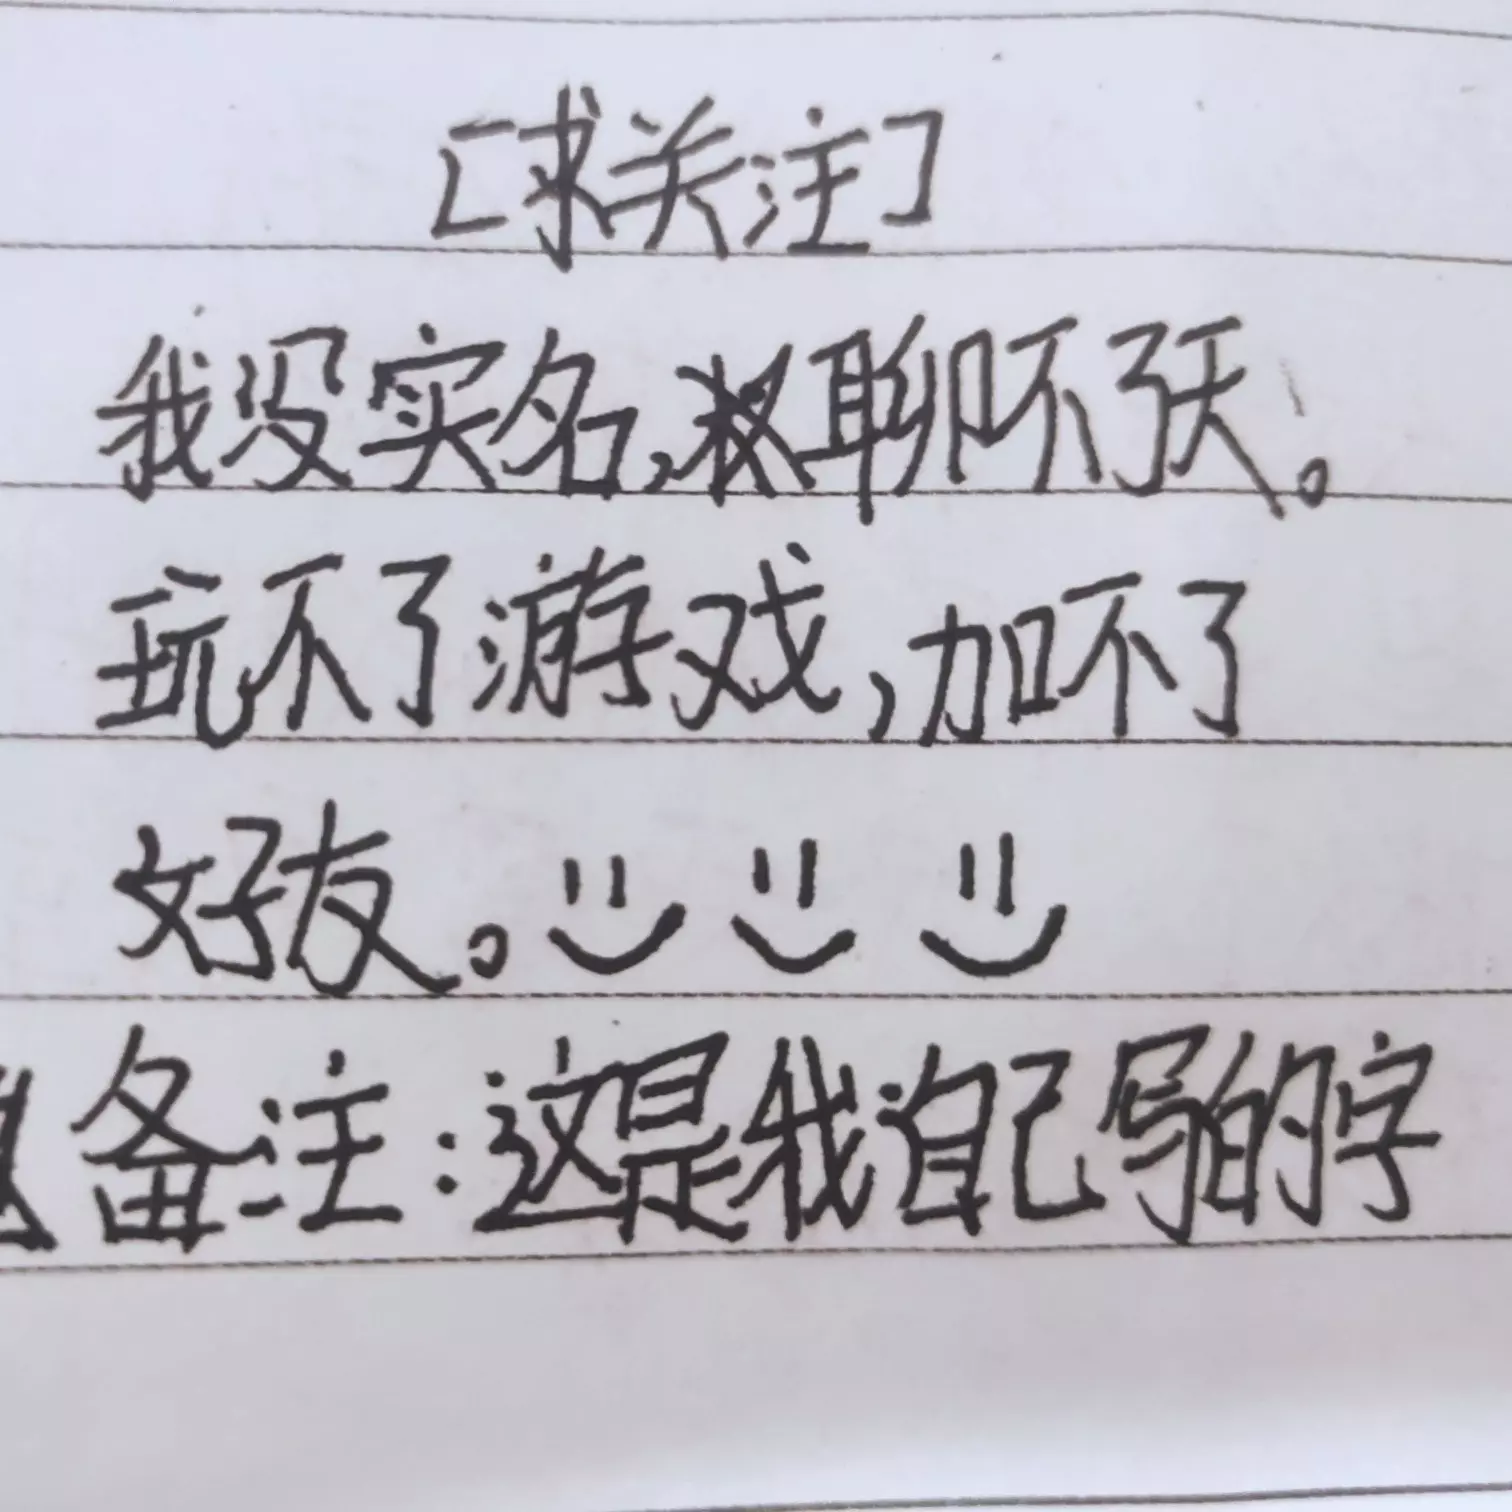 [求关注]
我没实名,聊不了天。
玩不了游戏,加不了
好友。
备注:这是我自己写的字